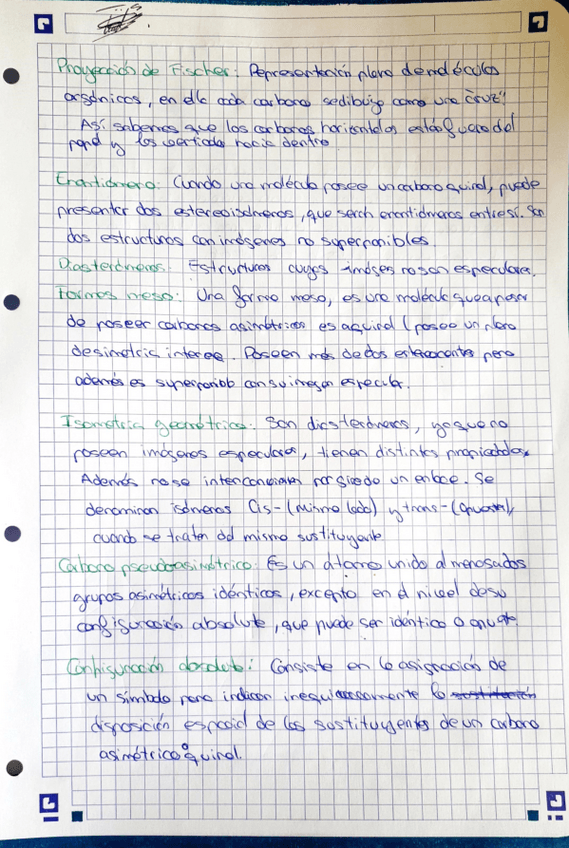 Proyección de Fischer: Representación plana de moléculas
orgánicas, en ella cada carbono se dibuja como una "cruz".
Así sabemos que los carbonos horizontales están fuera del
papel y los verticales hacia dentro.
Enantiómero: Cuando una molécula posee un carbono quiral, puede
presentar dos estereoisómeros, que serán enantiómeros entre sí. Son
dos estructuras con imágenes no superponibles.
Diasterómeros: Estructuras cuyas imágenes no son especulares.
Formas meso: Una forma meso, es una molécula que a pesar
de poseer carbonos asimétricos es aquiral (posee un plano
de simetría interna. Poseen más de dos pero
además es superponible con su imagen especular.
Isometría geométrica: Son diasterómeros, ya que no
poseen imágenes especulares, tienen distintas propiedades.
Además no se interconvierten rompiendo un enlace. Se
denominan isómeros Cis-(mismo lado) y trans-(opuesto),
cuando se tratan del mismo sustituyente
Carbono pseudoasimétrico: Es un átomo unido al menos a dos
grupos asimétricos idénticos, excepto en el nivel de su
configuración absoluta, que puede ser idéntico o opuesto.
Configuración absoluta: Consiste en la asignación de
un símbolo para indicar la
disposición espacial de los sustituyentes de un carbono
asimétrico o quiral.